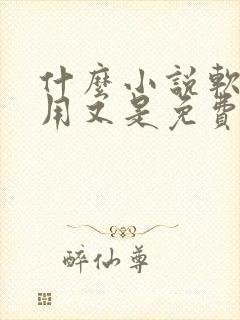 什麼小說軟
用又是免費
醉仙尊